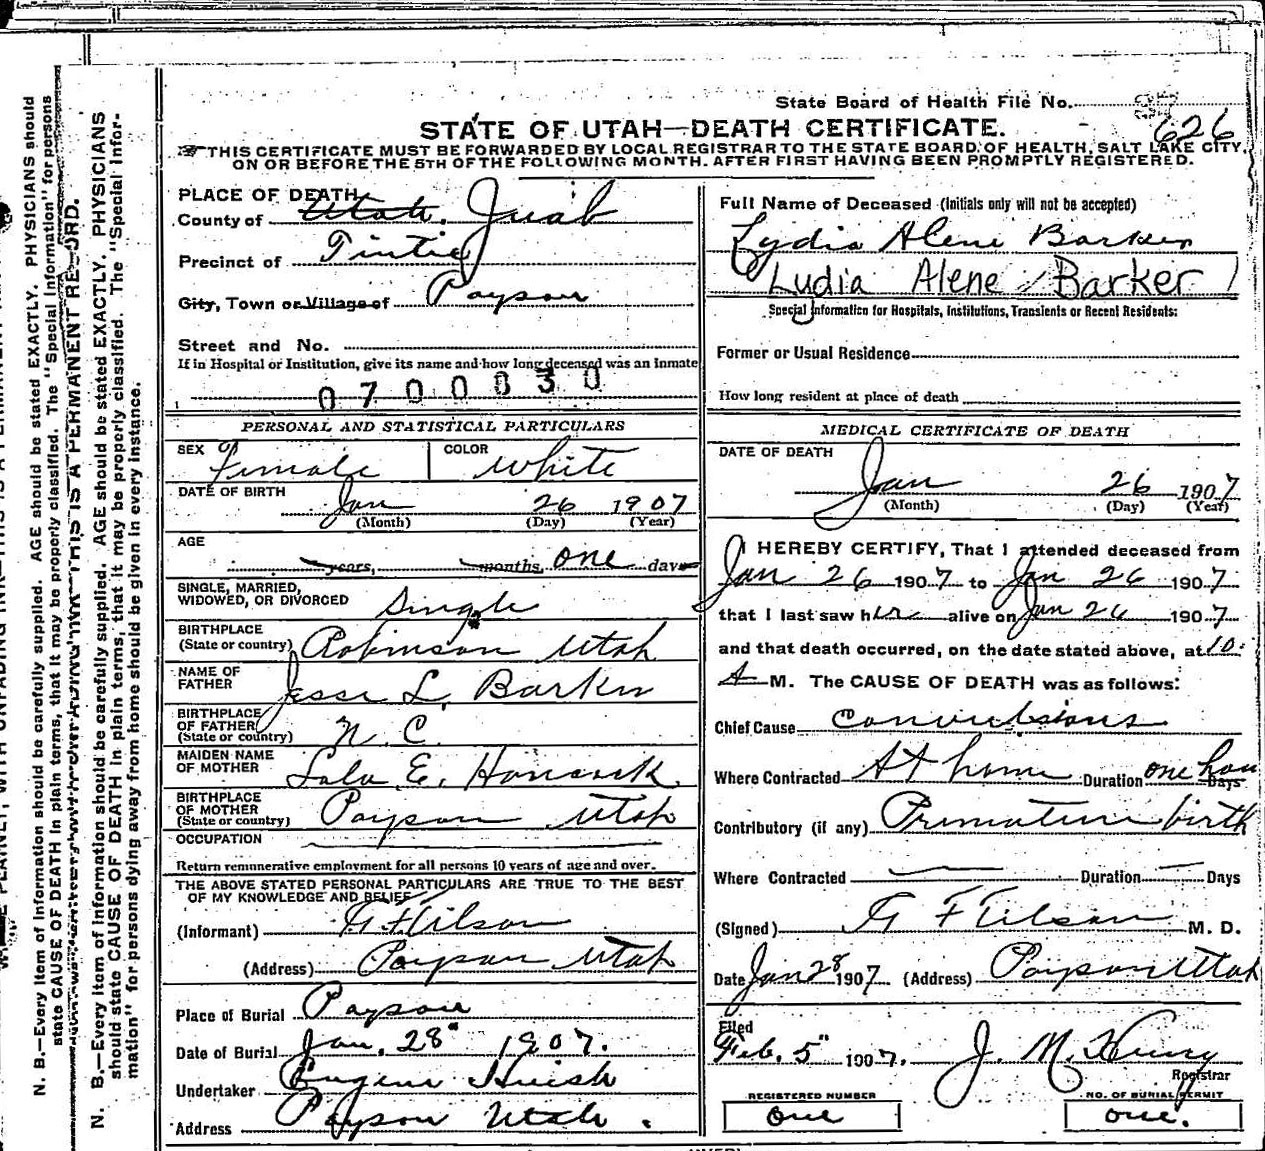 State Board of Health File No.
626
STATE OF UTAH—DEATH CERTIFICATE.
THIS CERTIFICATE MUST BE FORWARDED BY LOCAL REGISTRAR TO THE STATE BOARD OF HEALTH, SALT LAKE CITY,
ON OR BEFORE THE 5TH OF THE FOLLOWING MONTH. AFTER FIRST HAVING BEEN PROMPTLY REGISTERED.
PLACE OF DEATH
County of Utah. Juab
Precinct of Tintic
City, Town or Village of Payson
Street and No.
If in Hospital or Institution, give its name and how long deceased was an inmate
0700030
PERSONAL AND STATISTICAL PARTICULARS
SEX Female COLOR White
DATE OF BIRTH Jan 26 1907
(Month) (Day) (Year)
AGE years, months, one days
SINGLE, MARRIED,
WIDOWED, OR DIVORCED Single
BIRTHPLACE
(State or country) Robinson Utah
NAME OF
FATHER Jesse L. Barker
BIRTHPLACE
OF FATHER
(State or country) N. C.
MAIDEN NAME
OF MOTHER Lola E. Hancock
BIRTHPLACE
OF MOTHER
(State or country) Payson Utah
OCCUPATION
Return remunerative employment for all persons 10 years of age and over.
THE ABOVE STATED PERSONAL PARTICULARS ARE TRUE TO THE BEST
OF MY KNOWLEDGE AND BELIEF
(Informant) G F Tilson
(Address) Payson Utah
Place of Burial Payson
Date of Burial Jan. 28" 1907.
Undertaker Eugene Huish
Address Payson Utah.
Full Name of Deceased (Initials only will not be accepted)
Lydia Alene Barker
Lydia Alene Barker
Special Information for Hospitals, Institutions, Transients or Recent Residents:
Former or Usual Residence
How long resident at place of death
MEDICAL CERTIFICATE OF DEATH
DATE OF DEATH
Jan 26 1907
(Month) (Day) (Year)
I HEREBY CERTIFY, That I attended deceased from
Jan 26 1907 to Jan 26 1907
that I last saw her alive on Jan 26 1907
and that death occurred, on the date stated above, at 10:
A M. The CAUSE OF DEATH was as follows:
Chief Cause Convulsions
Where Contracted At home Duration one hour Days
Contributory (if any) Premature birth
Where Contracted Duration Days
(Signed) G F Tilson M. D.
Date Jan 28 1907 (Address) Payson Utah
Filed
Feb. 5" 1907. J. M. Henry
Registrar
REGISTERED NUMBER
one
NO. OF BURIAL PERMIT
one.
N. B.—Every item of information should be carefully supplied. AGE should be stated EXACTLY. PHYSICIANS should
state CAUSE OF DEATH in plain terms, that it may be properly classified. The "Special Information" for persons
THIS IS A PERMANENT RECORD.
N. B.—Every item of information should be carefully supplied. AGE should be stated EXACTLY. PHYSICIANS
should state CAUSE OF DEATH in plain terms, that it may be properly classified. The "Special Infor-
mation" for persons dying away from home should be given in every instance.